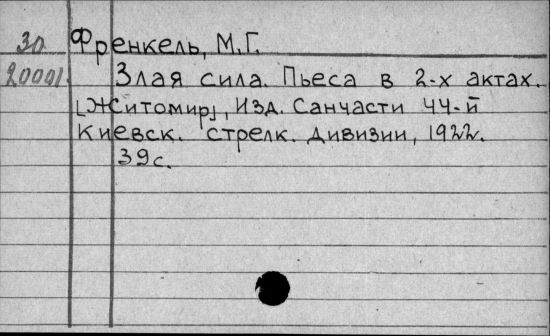 30 Френкель, М.Г.
20001 Злая сила. Пьеса в 2-х актах.
[Житомир], Изд. Санчасти 44-й
Киевск. стрелк. дивизии, 1922.
39с.